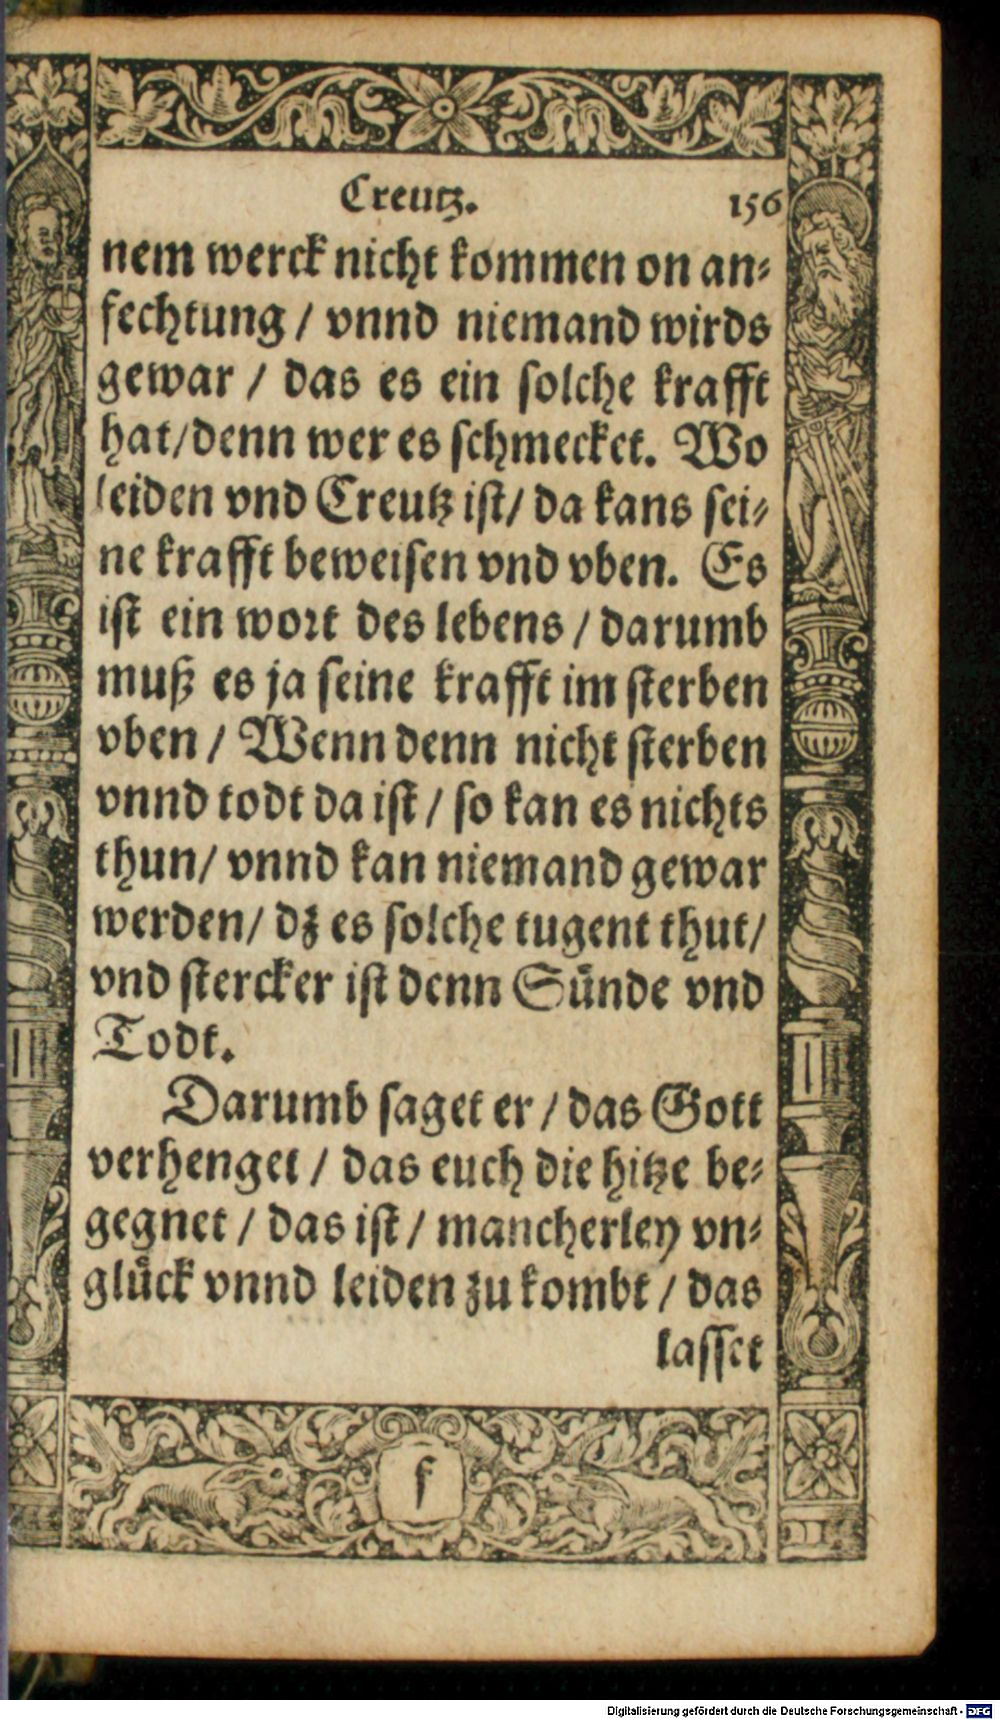 Creutz. 156
nem werck nicht kommen on an⸗
fechtung / vnnd niemand wirds
gewar / das es ein solche krafft
hat/denn wer es schmecket. Wo
leiden vnd Creutz ist/ da kans sei⸗
ne krafft beweisen vnd vben. Es
ist ein wort des lebens / darumb
muß es ja seine krafft im sterben
vben / Wenn denn nicht sterben
vnnd todt da ist / so kan es nichts
thun/ vnnd kan niemand gewar
werden/ dz es solche tugent thut/
vnd stercker ist denn Sünde vnd
Todt.
Darumb saget er / das Gott
verhenget / das euch die hitze be⸗
gegnet / das ist / mancherley vn⸗
glück vnnd leiden zu kombt / das
lasset
f
Digitalisierung gefördert durch die Deutsche Forschungsgemeinschaft - DFG